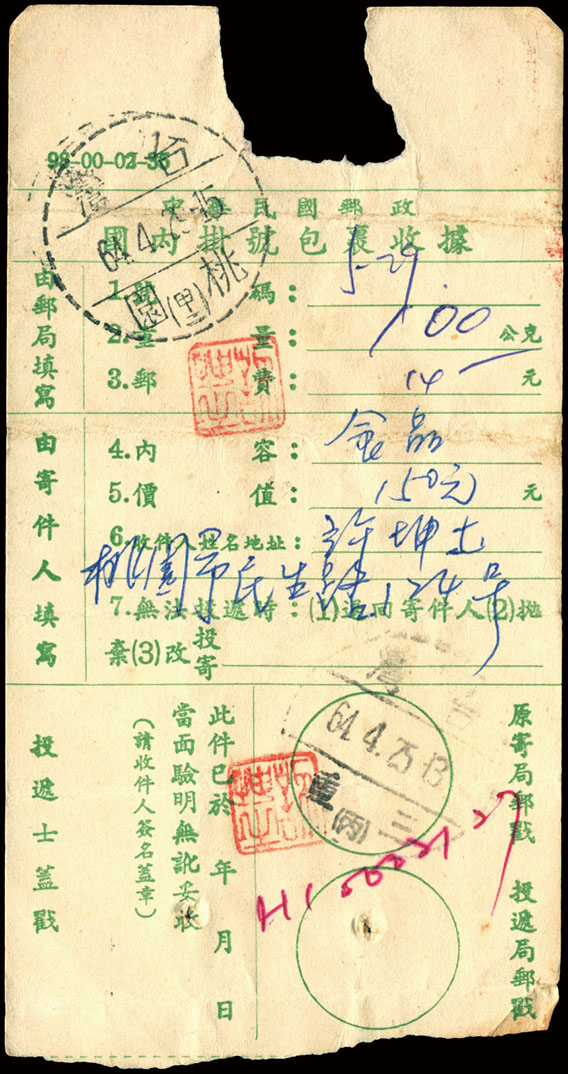 98-00-02-36
台灣
64.4.25-15
桃園(甲)
中華民國郵政
國內掛號包裹收據
由郵局填寫
1.號碼：
2.重量：100公克
3.郵費：14元
由寄件人填寫
4.內容：食品
5.價值：150元 元
6.收件人姓名地址：許坤土
桃園市民生路124号
7.無法投遞時：(1)退回寄件人(2)拋
棄(3)改投寄
原寄局郵戳
台灣
64.4.25-13
三重(丙)
投遞局郵戳
此件已於 年 月 日
當面驗明無訛妥收
(請收件人簽名蓋章)
投遞士蓋戳